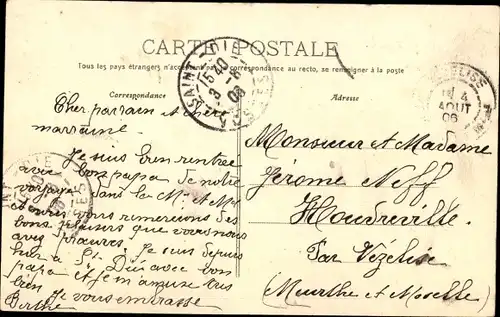 CARTE POSTALE
Tous les pays étrangers n'acceptent pas la correspondance au recto, se renseigner à la poste
Correspondance
Adresse
SAINT-DIÉ
15 40
3 -8
06
VOSGES
VÉZELISE
4
AOUT
06
Cher parrain et chère
marraine
Je suis bien rentrée
avec bon papa de notre
voyage dans la M. et M.
et nous vous remercions des
bons plaisirs que vous nous
avez procurés. Je suis depuis
hier à St. Dié avec bon
papa et je m'amuse très
bien
Je vous embrasse
Berthe
Monsieur et Madame
Jérome Neff
Houdreville
Par Vézelise
(Meurthe et Moselle)